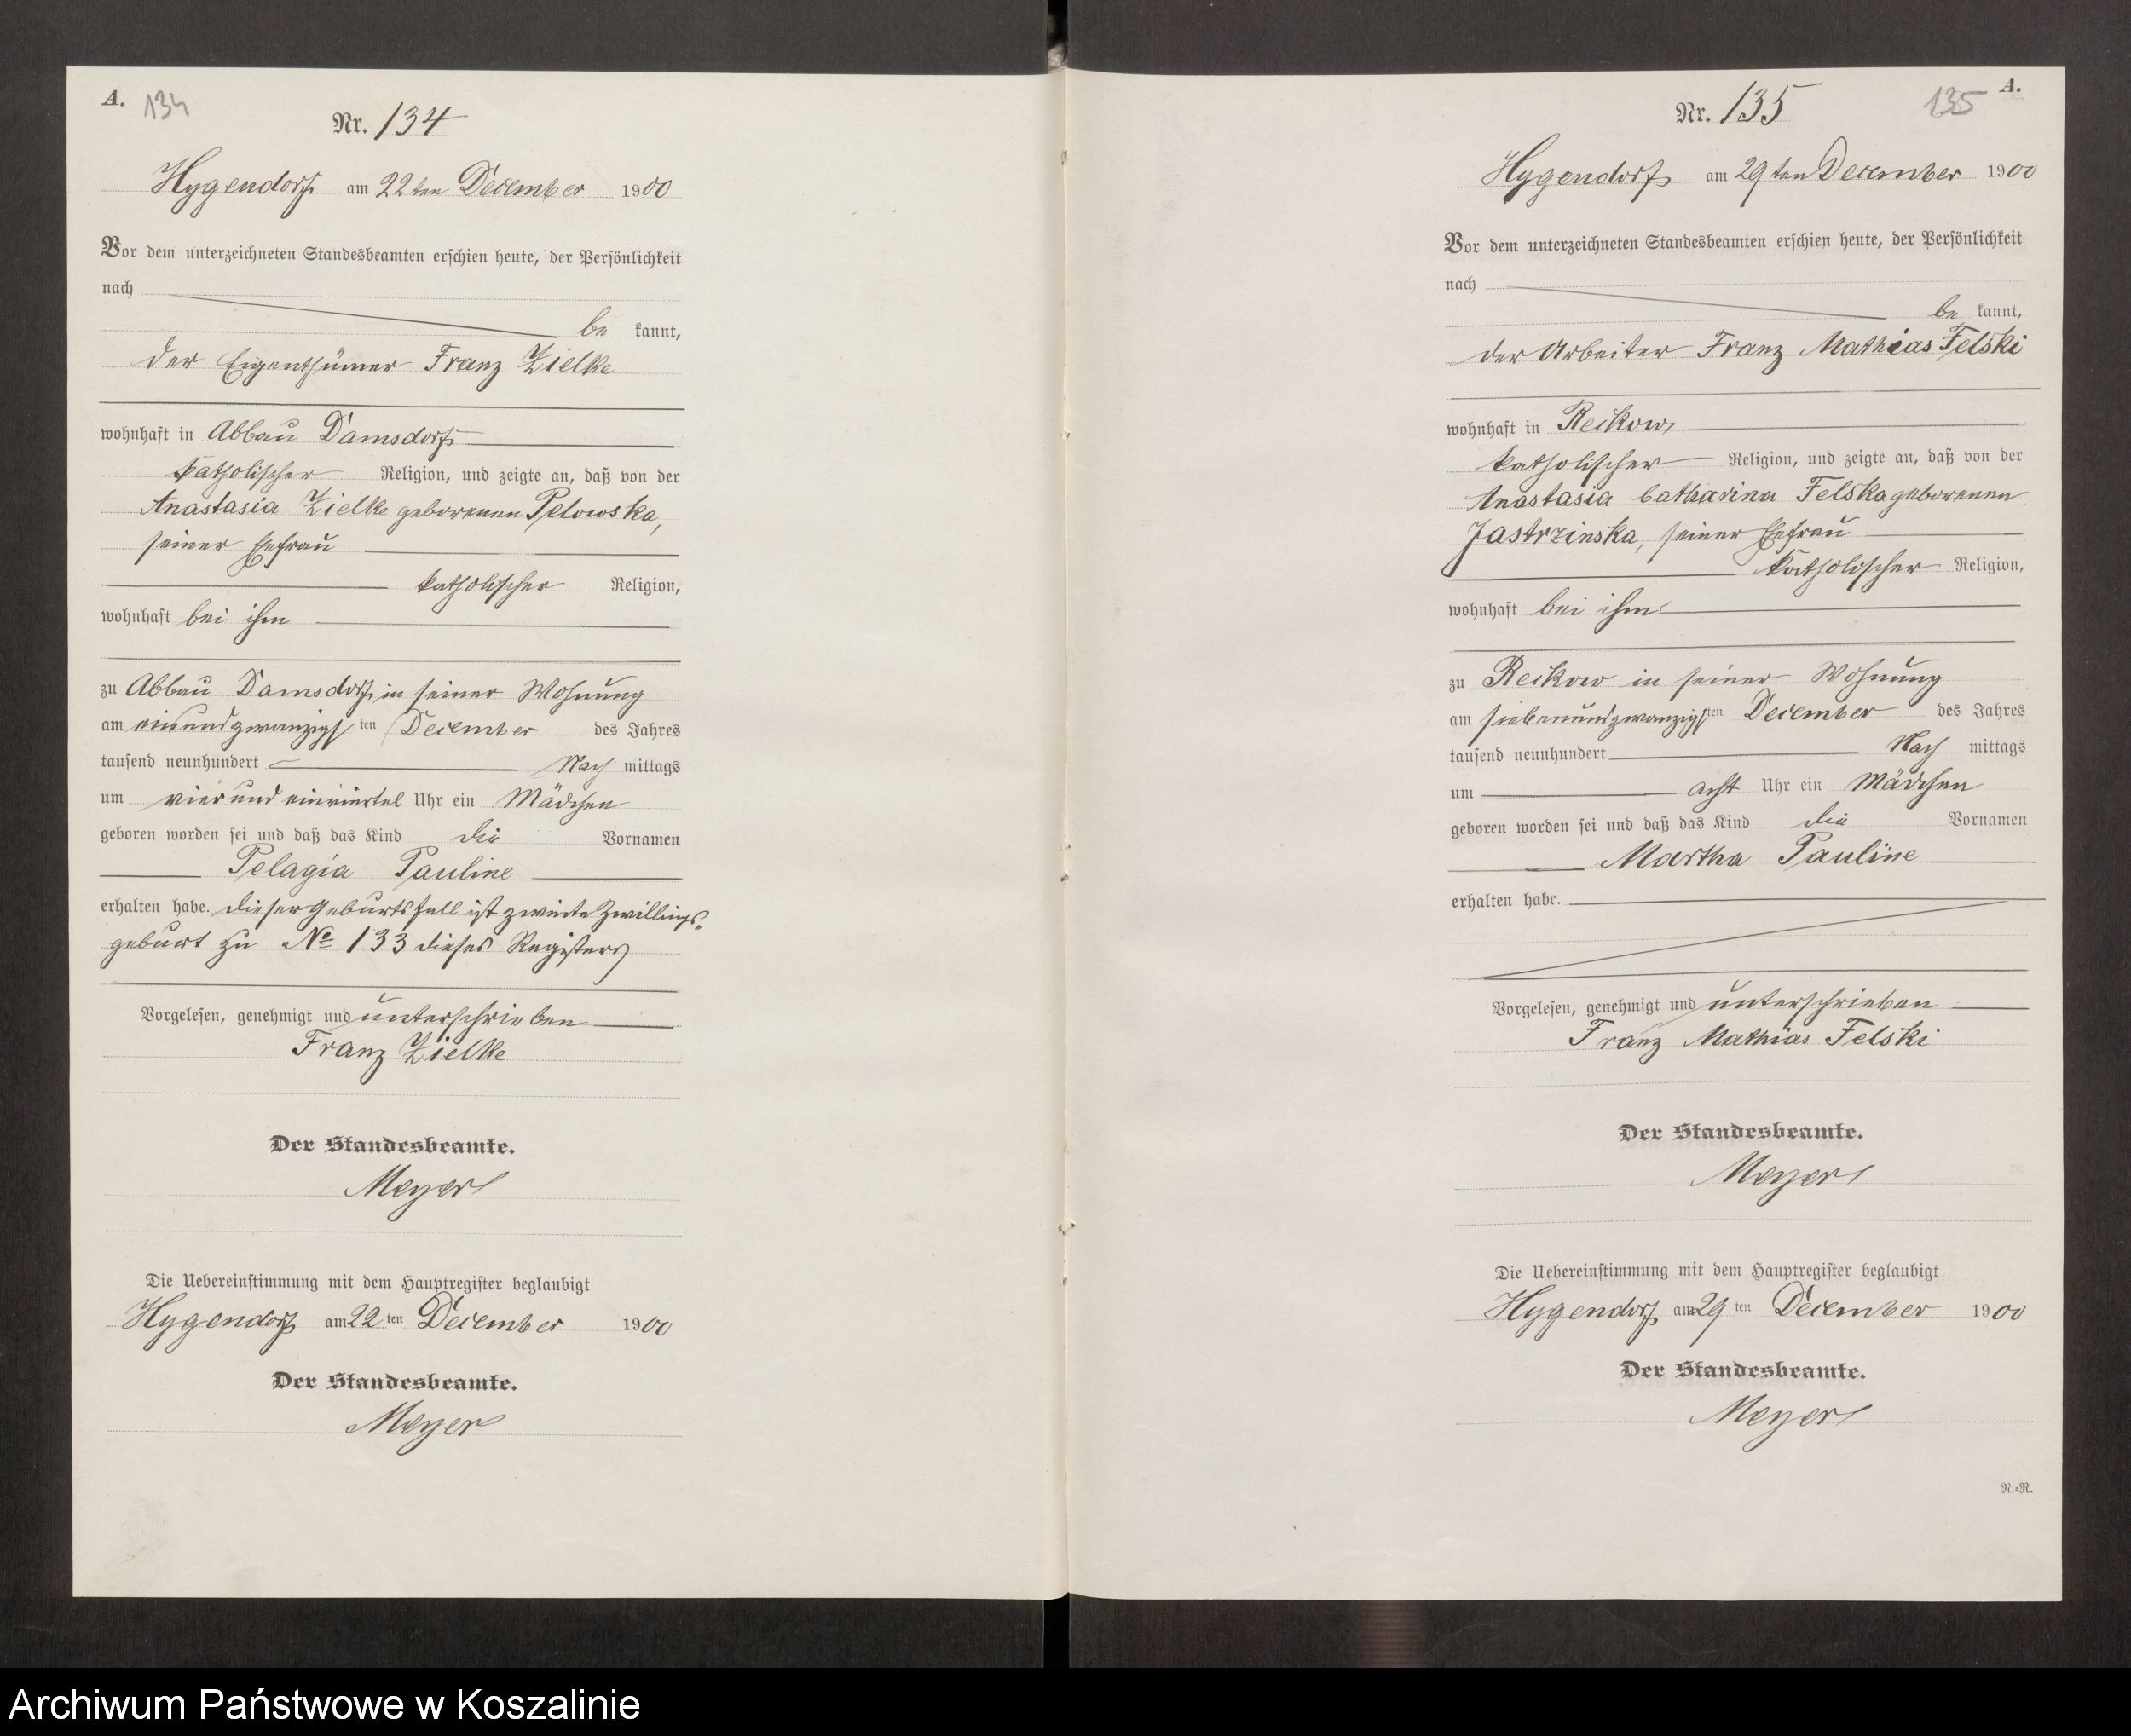 A. 134
Nr. 134
Hygendorf am 22ten December 1900
Vor dem unterzeichneten Standesbeamten erschien heute, der Persönlichkeit
nach
be kannt,
der Eigenthümer Franz Zielke
wohnhaft in Abbau Damsdorf
katholischer Religion, und zeigte an, daß von der
Anastasia Zielke geborenen Pelowska,
seiner Ehefrau
katholischer Religion,
wohnhaft bei ihm
zu Abbau Damsdorf in seiner Wohnung
am einundzwanzigsten December des Jahres
tausend neunhundert Nach mittags
um vier und einviertel Uhr ein Mädchen
geboren worden sei und daß das Kind die Vornamen
Pelagia Pauline
erhalten habe. Dieser Geburtsfall ist zweite Zwillings-
geburt zu No 133 dieses Registers
Vorgelesen, genehmigt und unterschrieben
Franz Zielke
Der Standesbeamte.
Meyer
Die Uebereinstimmung mit dem Hauptregister beglaubigt
Hygendorf am 22 ten December 1900
Der Standesbeamte.
Meyer
135 A.
Nr. 135
Hygendorf am 29ten December 1900
Vor dem unterzeichneten Standesbeamten erschien heute, der Persönlichkeit
nach
be kannt,
der Arbeiter Franz Mathias Felski
wohnhaft in Reckow,
katholischer Religion, und zeigte an, daß von der
Anastasia Catharina Felska geborenen
Jastrzinska, seiner Ehefrau
katholischer Religion,
wohnhaft bei ihm
zu Reckow in seiner Wohnung
am siebenundzwanzigsten December des Jahres
tausend neunhundert Nach mittags
um acht Uhr ein Mädchen
geboren worden sei und daß das Kind die Vornamen
Martha Pauline
erhalten habe.
Vorgelesen, genehmigt und unterschrieben
Franz Mathias Felski
Der Standesbeamte.
Meyer
Die Uebereinstimmung mit dem Hauptregister beglaubigt
Hygendorf am 29 ten December 1900
Der Standesbeamte.
Meyer
N.=N.
Archiwum Państwowe w Koszalinie